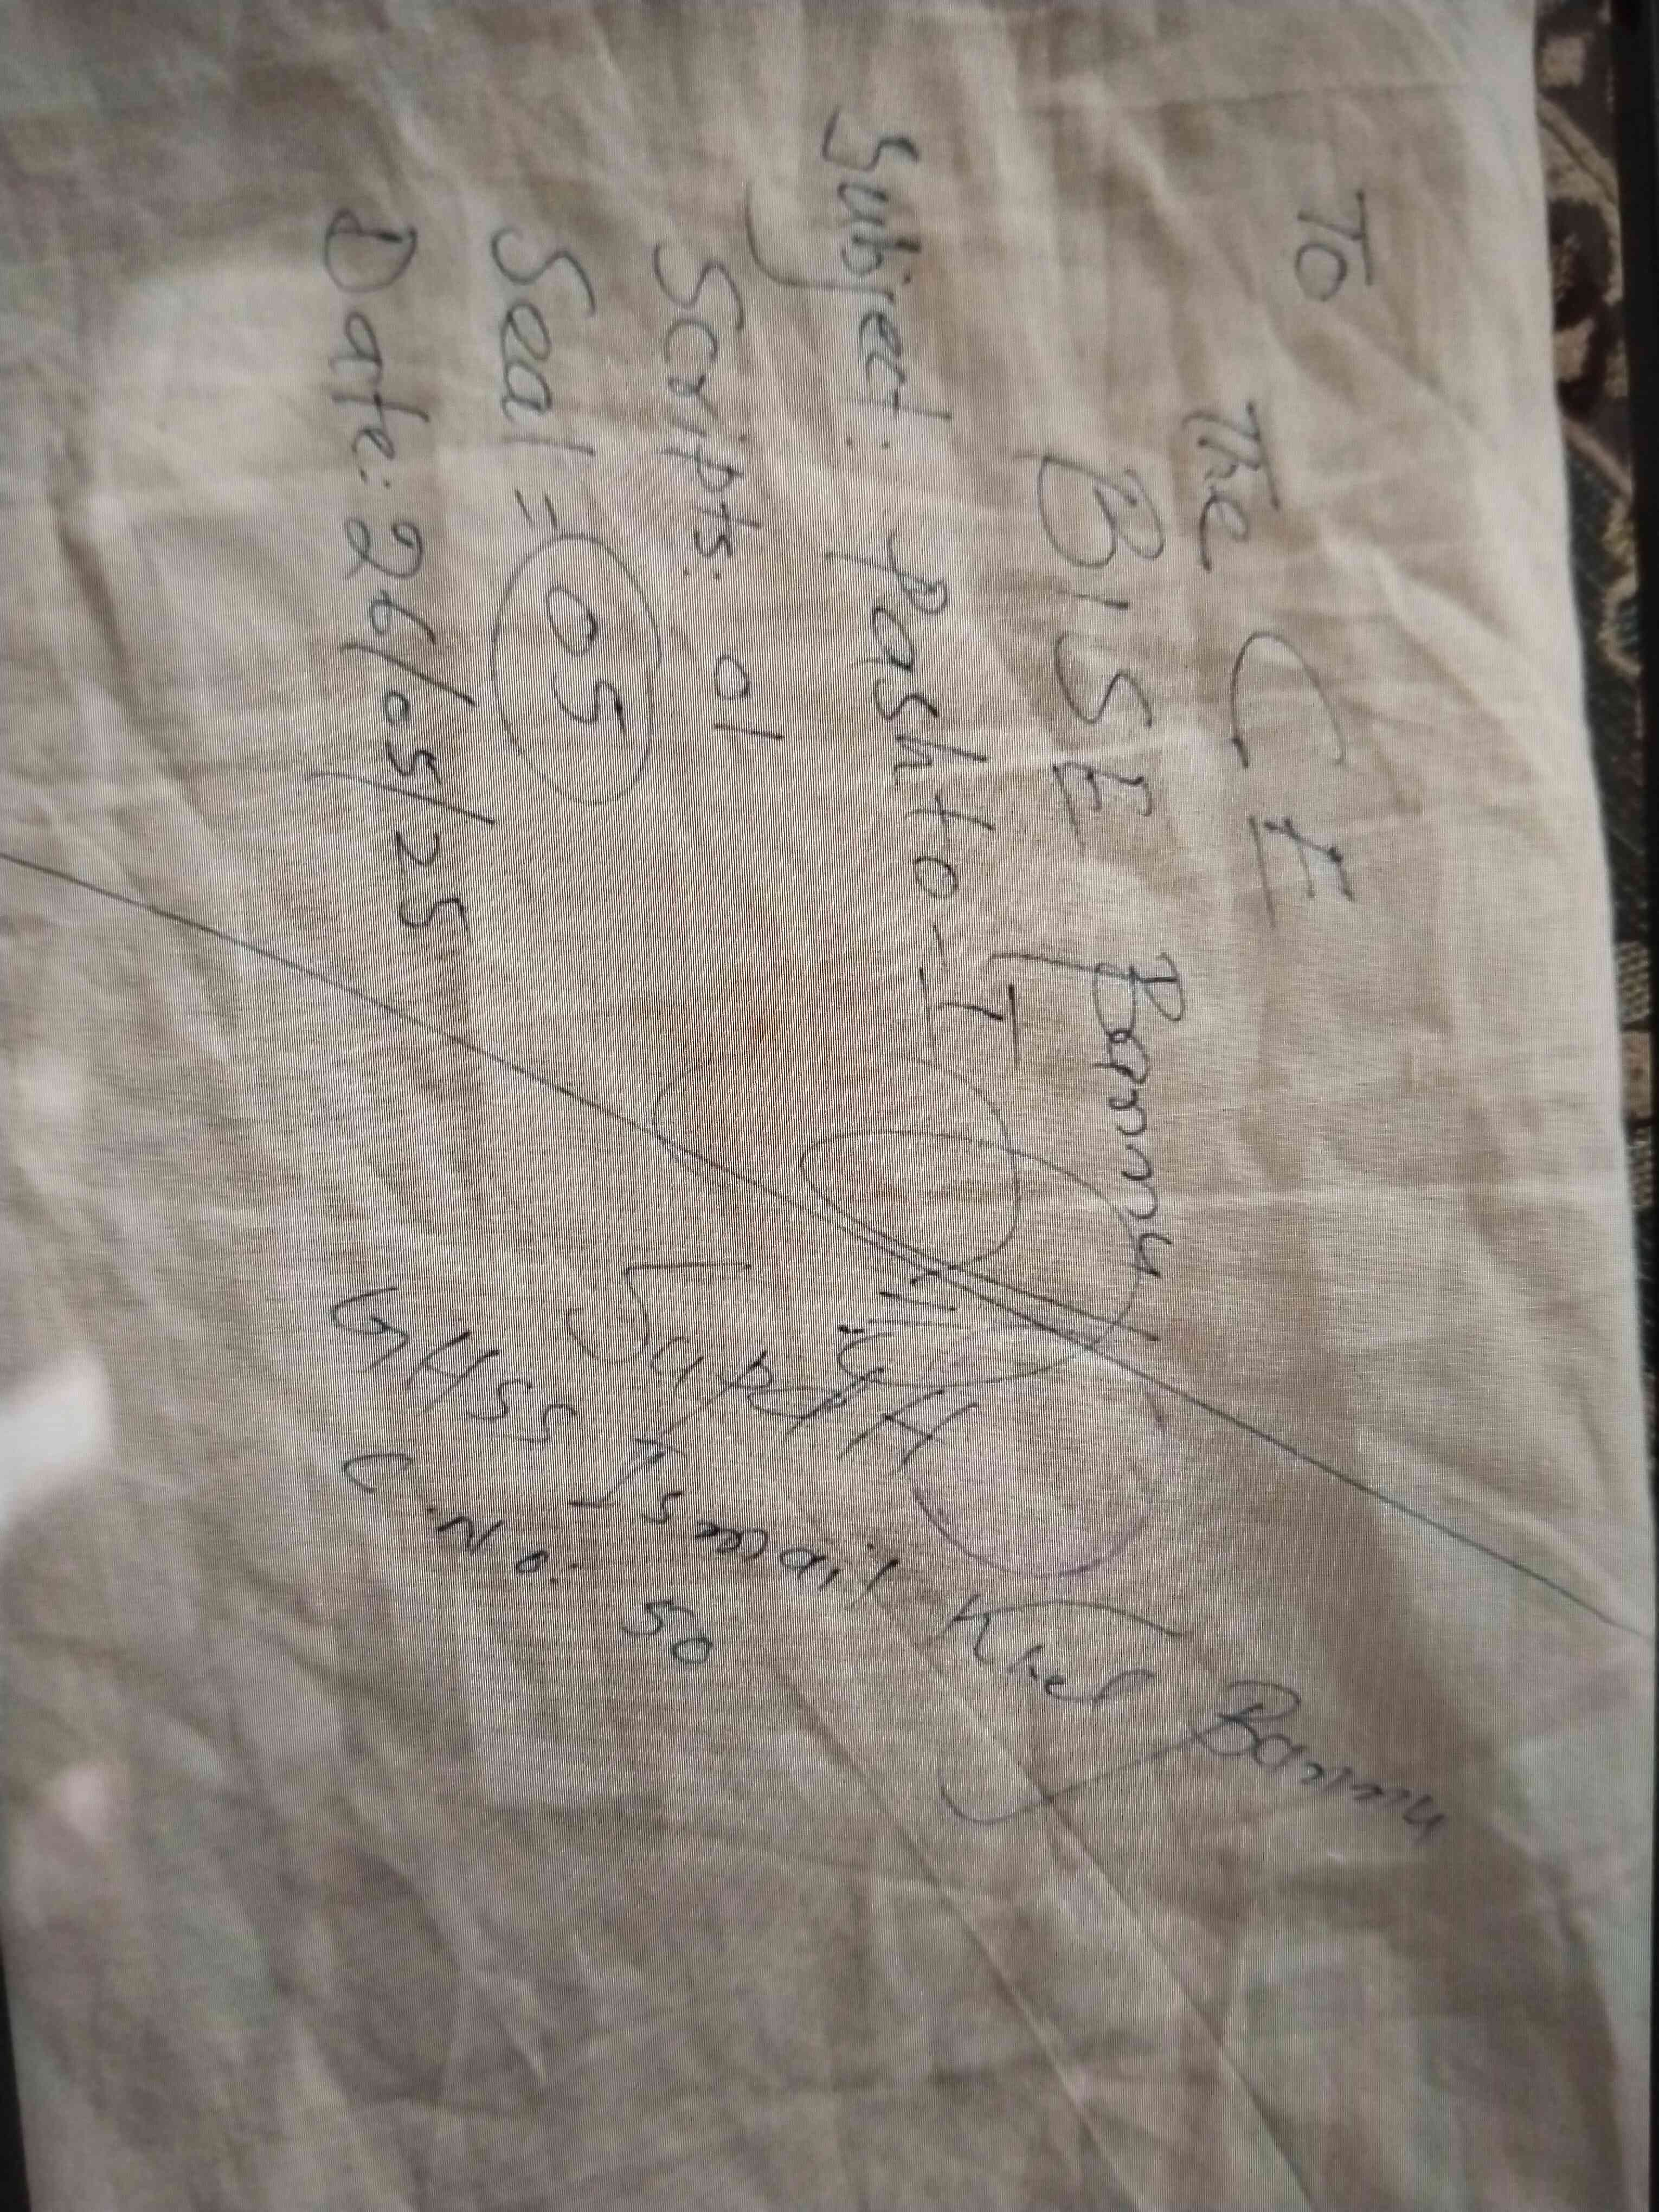 To
The CE
BISE Bannu
Subject: Pashto-I
Scripts: 01
Seal = 05
Date: 26/05/25
Supdt
GHSS Ismail Khel Bannu
C.No. 50